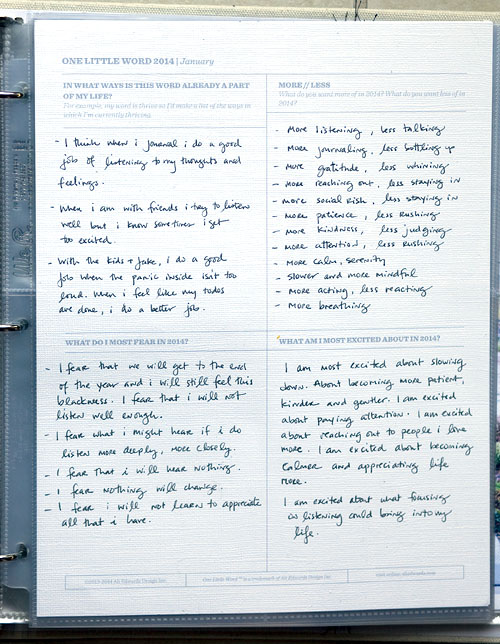 ONE LITTLE WORD 2014 | January
IN WHAT WAYS IS THIS WORD ALREADY A PART
OF MY LIFE?
For example, my word is thrive so I'd make a list of the ways in
which I'm currently thriving.
- I think when i journal i do a good
job of listening to my thoughts and
feelings.
- When i am with friends i try to listen
well but i know sometimes i get
too excited.
- With the kids + Jake, i do a good
job when the panic inside isn't too
loud. When i feel like my todos
are done, i do a better job.
MORE // LESS
What do you want more of in 2014? What do you want less of in
2014?
- more listening, less talking
- more journaling, less bottling up
- more gratitude, less whining
- more reaching out, less staying in
- more social risk, less staying in
- more patience, less rushing
- more kindness, less judging
- more attention, less rushing
- more calm, serenity
- slower and more mindful
- more acting, less reacting
- more breathing
WHAT DO I MOST FEAR IN 2014?
- I fear that we will get to the end
of the year and i will still feel this
blackness. I fear that i will not
listen well enough.
- I fear what i might hear if i do
listen more deeply, more closely.
- I fear that i will hear nothing.
- I fear nothing will change.
- I fear i will not learn to appreciate
all that i have.
WHAT AM I MOST EXCITED ABOUT IN 2014?
I am most excited about slowing
down. About becoming more patient,
kinder and gentler. I am excited
about paying attention. I am excited
about reaching out to people i love
more. I am excited about becoming
calmer and appreciating life
more.
I am excited about what focusing
on listening could bring into my
life.
©2013-2014 Ali Edwards Design Inc.
One Little Word™ is a trademark of Ali Edwards Design Inc